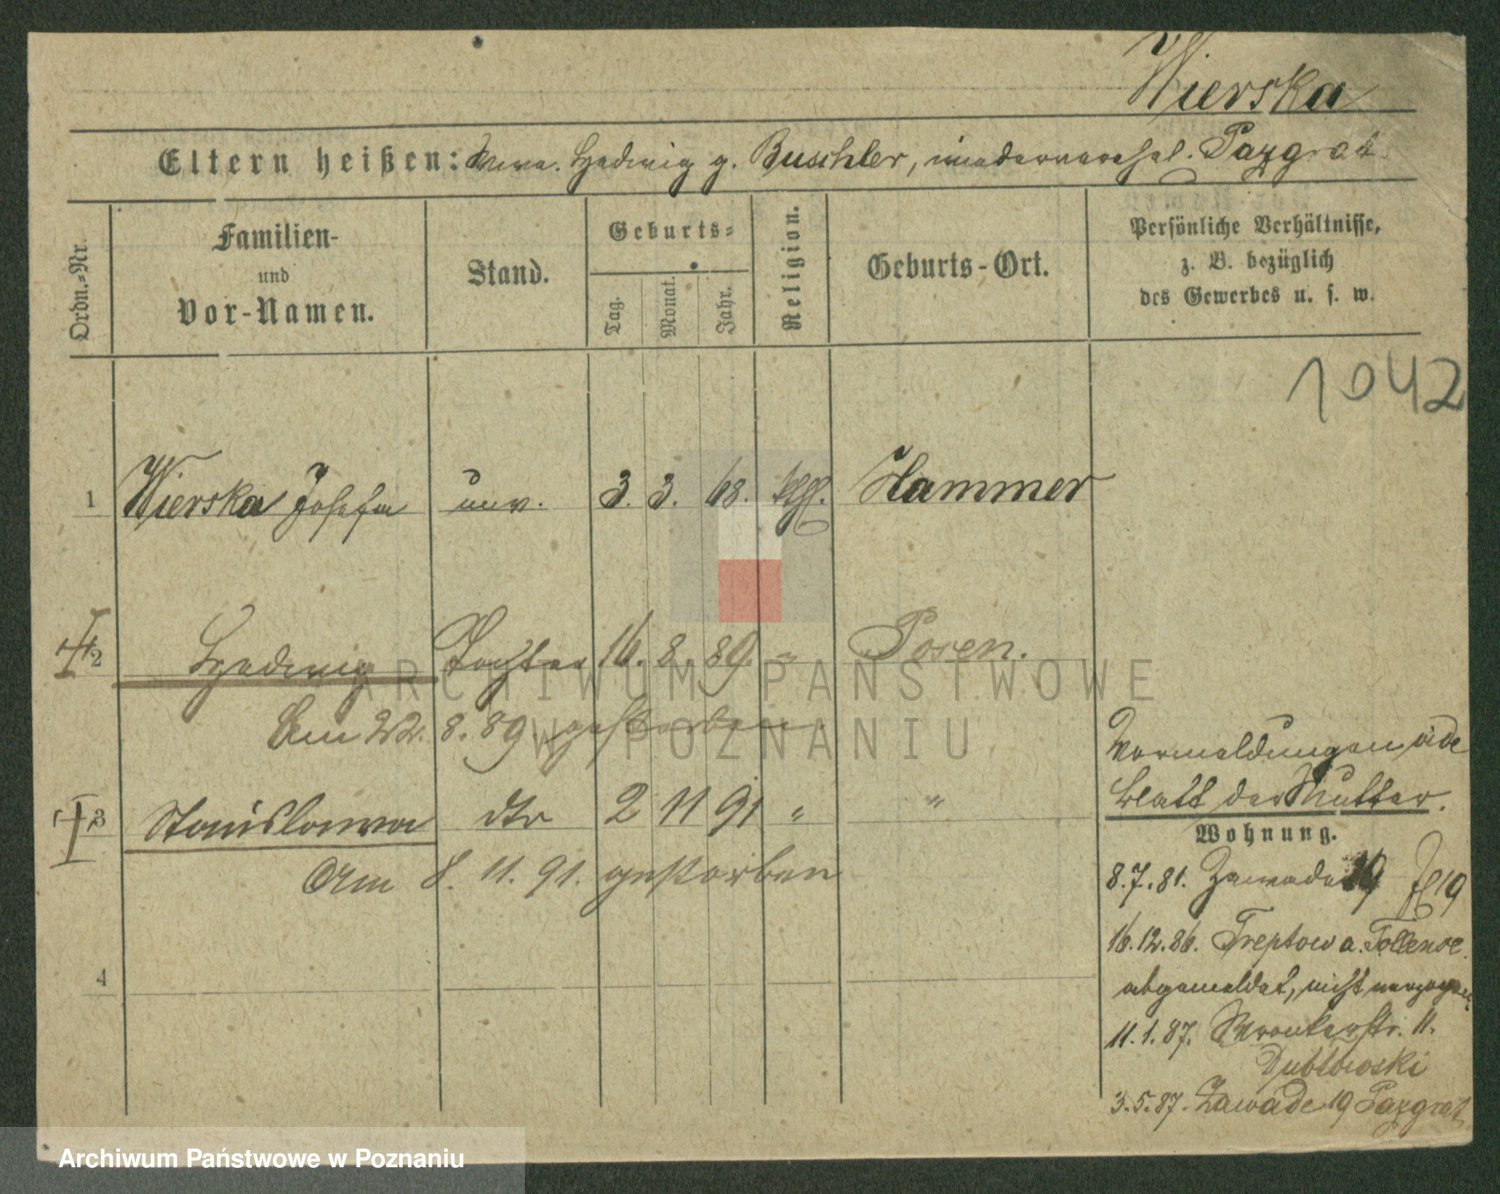 Wierska
Eltern heißen: Wwe. Hedwig g. Buschler, wiederverehel. Pazgrat
Ordn.-Nr.
Familien-
und
Vor-Namen.
Stand.
Geburts-
Tag.
Monat.
Jahr.
Religion.
Geburts-Ort.
Persönliche Verhältnisse,
z. B. bezüglich
des Gewerbes u. s. w.
1042
1 Wierska Josefa unv. 3. 3. 68. kth. Hammer
2 Hedwig Tochter 16. 8. 89. " Posen.
Am 22. 8. 89 gestorben
3 Stanislawa dtr 2 11 91 " "
Am 8. 11. 91. gestorben
4
Vormeldungen
Blatt der Mutter.
Wohnung.
8.7.81. Zawade 19
16.12.86. Treptow a. Tollense
abgemeldet, nicht verzogen
11.1.87. Wronkerstr. 11.
3.5.87. Zawade 19 Pazgrat
ARCHIWUM PAŃSTWOWE
W POZNANIU
Archiwum Państwowe w Poznaniu